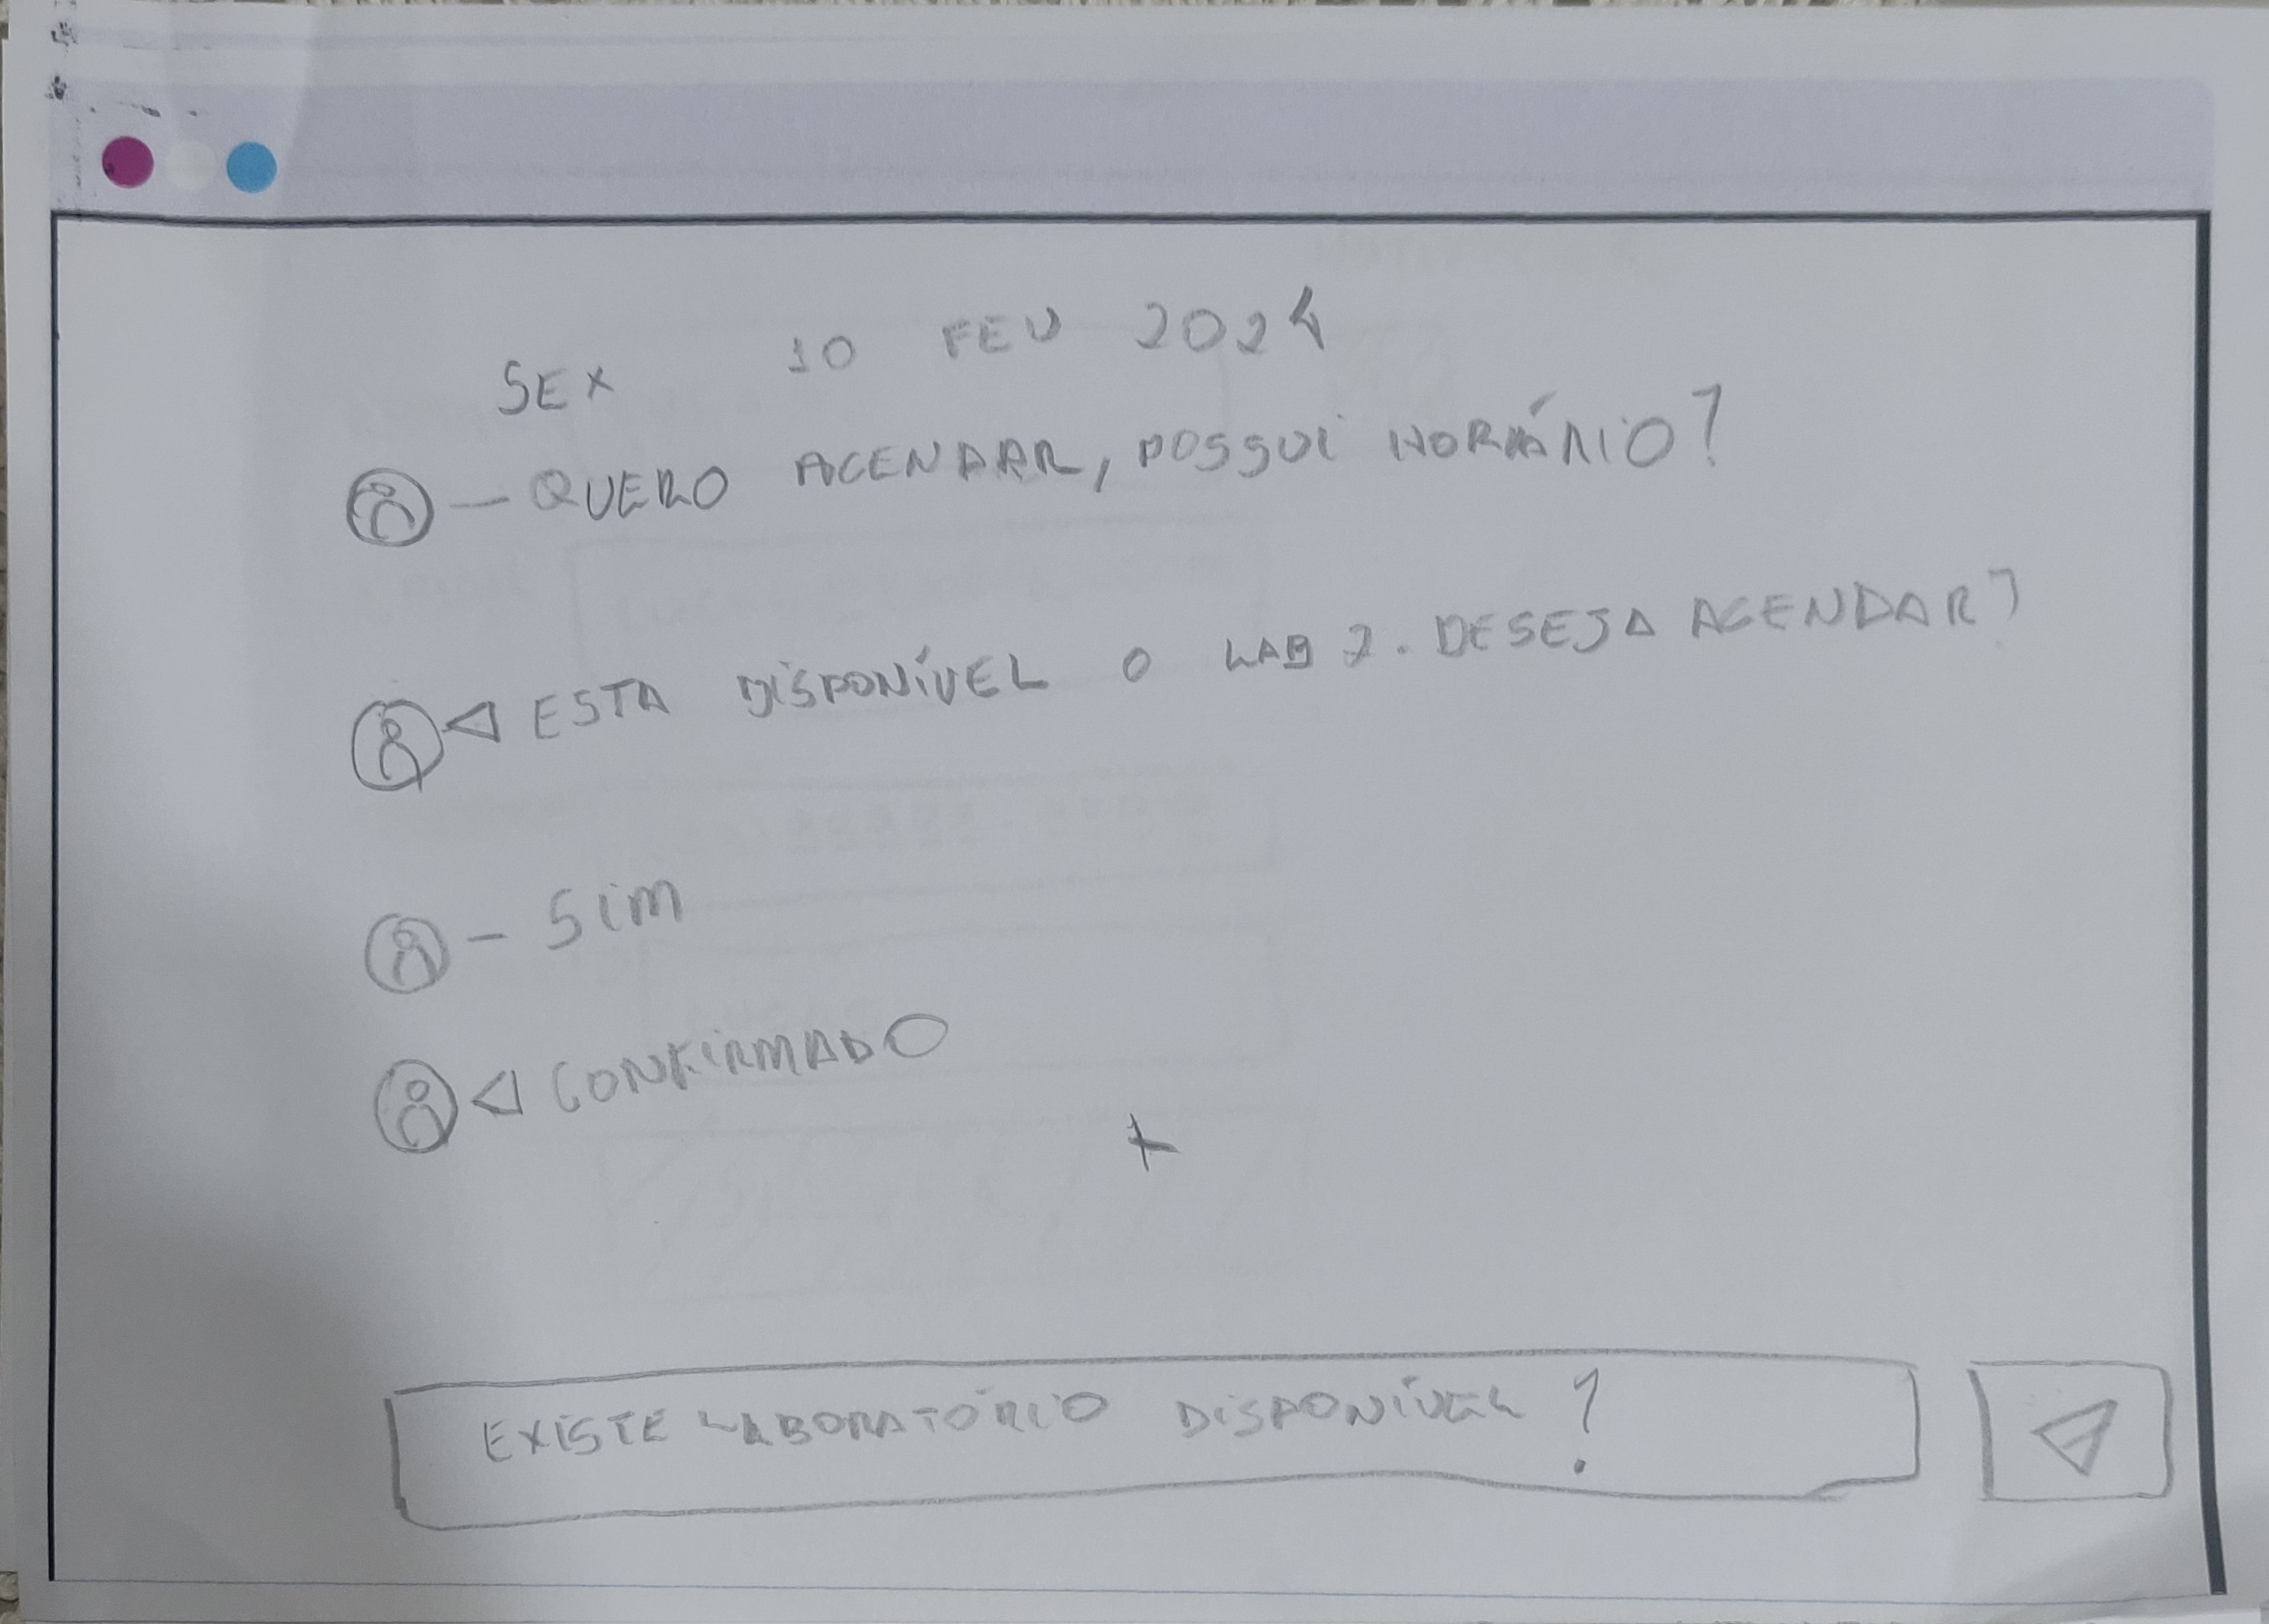 SEX 10 FEV 2024
- QUERO AGENDAR, POSSUI HORÁRIO?
ESTA DISPONÍVEL O LAB 2. DESEJA AGENDAR?
- SIM
CONFIRMADO
EXISTE LABORATÓRIO DISPONÍVEL?